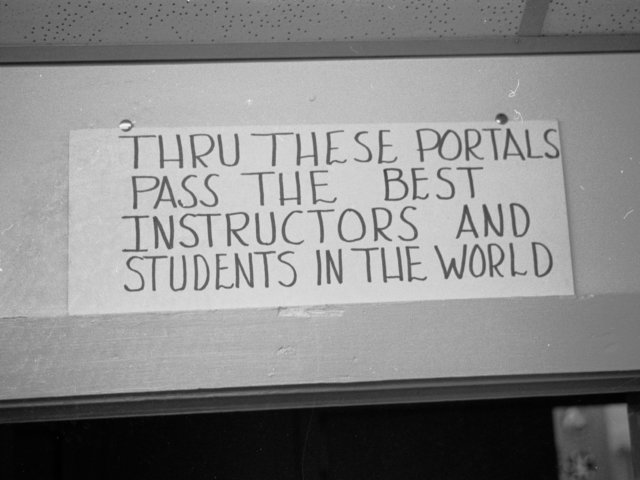 THRU THESE PORTALS
PASS THE BEST
INSTRUCTORS AND
STUDENTS IN THE WORLD